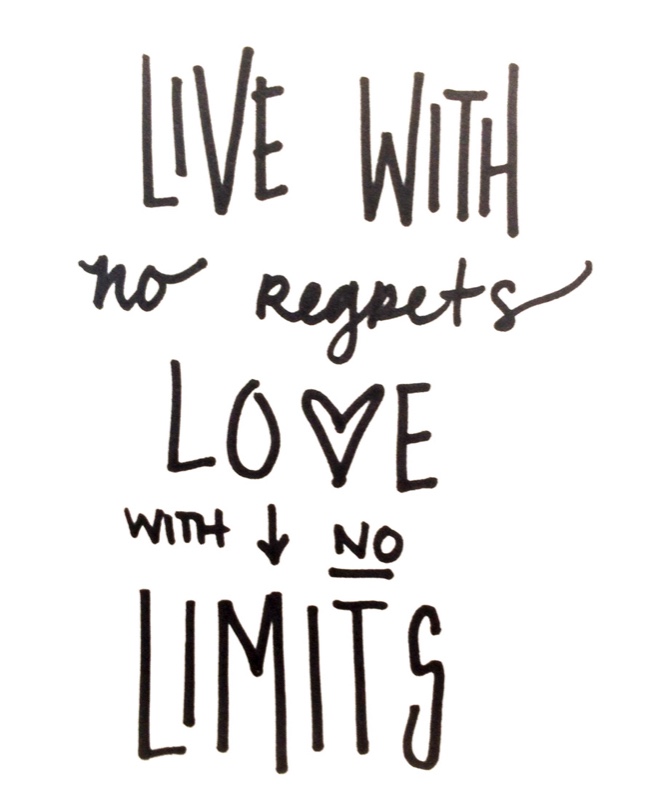 LIVE WITH
no regrets
LOVE
WITH ↓ NO
LIMITS